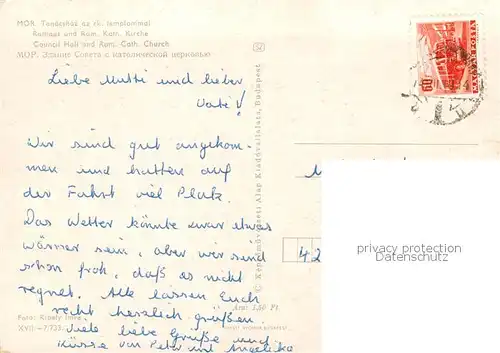 MÓR. Tanácsház az rk. templommal
Rathaus und Röm. Kath. Kirche
Council Hall and Rom. Cath. Church
МОР. Здание Совета с католической церковью
Liebe Mutti und lieber
Vati!
Wir sind gut angekom-
men und hatten auf
der Fahrt viel Platz.
Das Wetter könnte zwar etwas
wärmer sein, aber wir sind
schon froh, daß es nicht
regnet. Alle lassen Euch
recht herzlich grüßen.
Viele liebe Grüße und
Küsse von Peter und Angelika
Foto: Király Imre
Ára: 3,50 Ft
© Képzőművészeti Alap Kiadóvállalata, Budapest
60
MAGYAR POSTA
42
privacy protection
Datenschutz